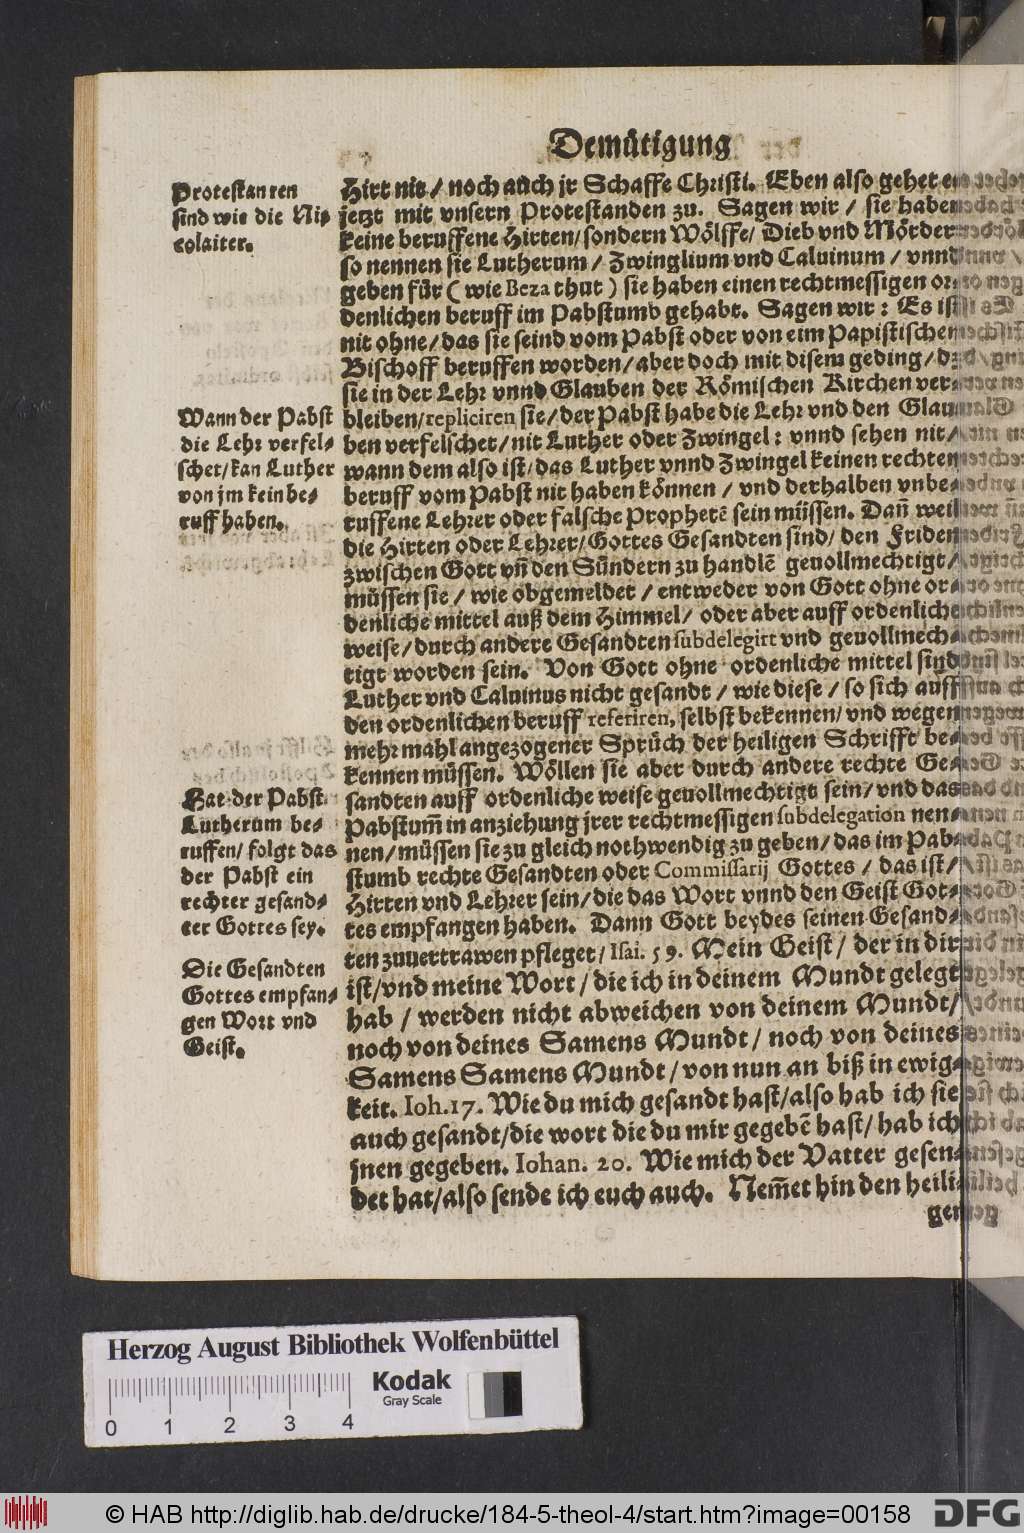 Demütigung
Protestanten
sind wie die Ni-
colaiter.
Wann der Pabst
die Lehr verfel-
schet/kan Luther
von jm kein be-
ruff haben.
Hat der Pabst
Lutherum be-
ruffen/ folgt das
der Pabst ein
rechter gesand-
ter Gottes sey.
Die Gesandten
Gottes empfan-
gen Wort vnd
Geist.
Hirt nit/ noch auch jr Schaffe Christi. Eben also gehet es
jetzt mit vnsern Protestanden zu. Sagen wir / sie haben
keine beruffene Hirten/sondern Wölffe/ Dieb vnd Mörder
so nennen sie Lutherum / Zwinglium vnd Caluinum / vnnd
geben für ( wie Beza thut ) sie haben einen rechtmessigen or-
denlichen beruff im Pabstumb gehabt. Sagen wir: Es ist
nit ohne/das sie seind vom Pabst oder von eim Papistischen
Bischoff beruffen worden/aber doch mit disem geding/ das
sie in der Lehr vnnd Glauben der Römischen Kirchen ver-
bleiben/repliciren sie/der Pabst habe die Lehr vnd den Glau-
ben verfelschet/nit Luther oder Zwingel: vnnd sehen nit/
wann dem also ist/das Luther vnnd Zwingel keinen rechten
beruff vom Pabst nit haben können / vnd derhalben vnbe-
ruffene Lehrer oder falsche Prophetē sein müssen. Dañ weil
die Hirten oder Lehrer/Gottes Gesandten sind/ den Friden
zwischen Gott vñ den Sündern zu handlē geuollmechtigt/
müssen sie / wie obgemeldet / entweder von Gott ohne or-
denliche mittel auß dem Himmel/ oder aber auff ordenliche
weise/durch andere Gesandten subdelegirt vnd geuollmech-
tigt worden sein. Von Gott ohne ordenliche mittel sind
Luther vnd Caluinus nicht gesandt / wie diese / so sich auff
den ordenlichen beruff referiren, selbst bekennen/ vnd wegen
mehrmahl angezogener Sprüch der heiligen Schrifft be-
kennen müssen. Wöllen sie aber durch andere rechte Ge-
sandten auff ordenliche weise geuollmechtigt sein/ vnd das
Pabstum̄ in anziehung jrer rechtmessigen subdelegation nen-
nen/müssen sie zu gleich nothwendig zu geben/das im Pab-
stumb rechte Gesandten oder Commissarij Gottes / das ist/
Hirten vnd Lehrer sein/die das Wort vnnd den Geist Got-
tes empfangen haben. Dann Gott beydes seinen Gesand-
ten zuuertrawen pfleget/ Isai. 59. Mein Geist/ der in dir
ist/vnd meine Wort/die ich in deinem Mundt gelegt
hab / werden nicht abweichen von deinem Mundt/
noch von deines Samens Mundt/ noch von deines
Samens Samens Mundt/von nun an biß in ewig-
keit. Ioh.17. Wie du mich gesandt hast/also hab ich sie
auch gesandt/die wort die du mir gegebē hast/ hab ich
jnen gegeben. Iohan. 20. Wie mich der Vatter gesen-
det hat/also sende ich euch auch. Nem̄et hin den heili-
gen
Herzog August Bibliothek Wolfenbüttel
Kodak
Gray Scale
0 1 2 3 4
© HAB http://diglib.hab.de/drucke/184-5-theol-4/start.htm?image=00158
DFG